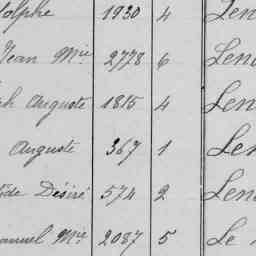 dolphe 1930 4 Len
Jean Mie 2778 6 Len
ph Auguste 1815 4 Len
Auguste 367 1 Len
Désiré 574 2 Len
anuel Mie 2087 5 Le